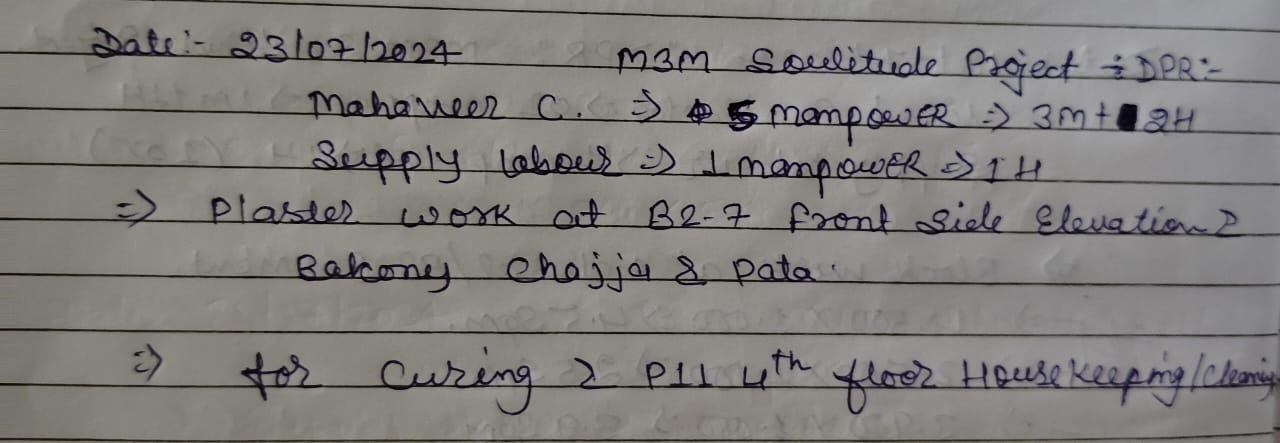 Date:- 23/07/2024 M3M Soulitude Project ÷ DPR:-
Mahaveer C. => 5 manpowER => 3M+ 2H
Supply labour => 1 manpowER => 1H
=> Plaster work at B2-7 front side Elevation &
Balcony chajja & Pata.
=> for Curing & P11 4th floor Housekeeping/cleaning